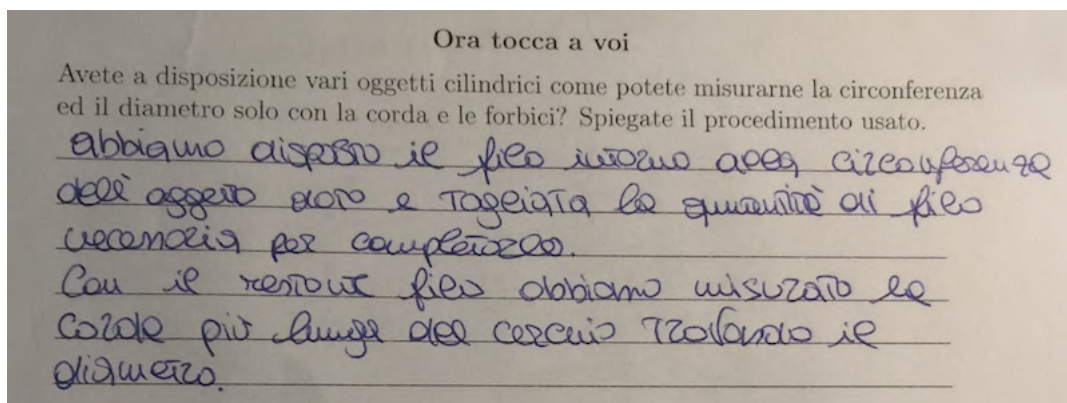 Ora tocca a voi
Avete a disposizione vari oggetti cilindrici come potete misurarne la circonferenza
ed il diametro solo con la corda e le forbici? Spiegate il procedimento usato.
abbiamo disposto il filo intorno alla circonferenza
dell'oggetto dato e tagliata la quantità di filo
necessaria per completarlo.
Con il restante filo abbiamo misurato la
corda più lunga del cerchio trovando il
diametro.